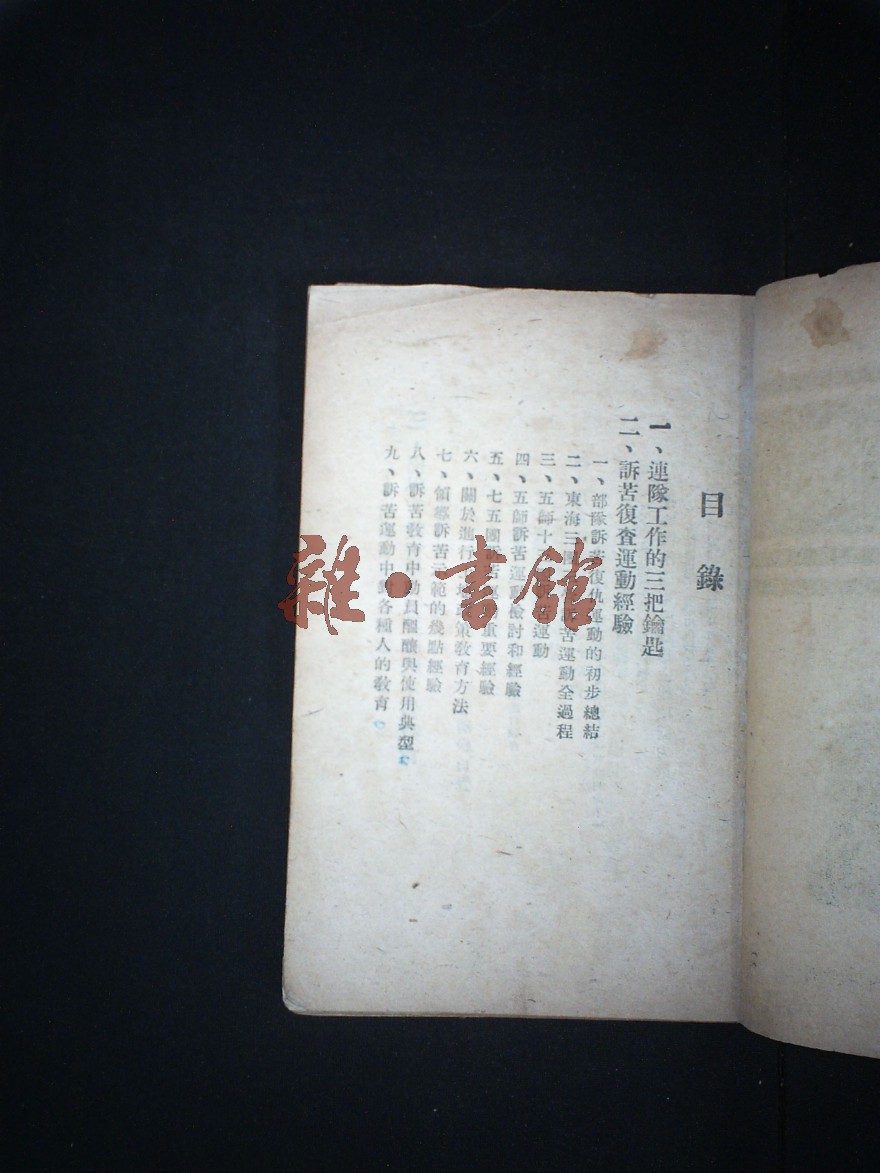 目錄
一、連隊工作的三把鑰匙
二、訴苦復查運動經驗
一、部隊訴苦復仇運動的初步總結
二、東海三團訴苦運動全過程
三、五師十 運動
四、五師訴苦運動檢討和經驗
五、七五團訴苦運動重要經驗
六、關於進行 策教育方法
七、領導訴苦示範的幾點經驗
八、訴苦教育中動員醞釀與使用典型
九、訴苦運動中對各種人的教育
雜·書館